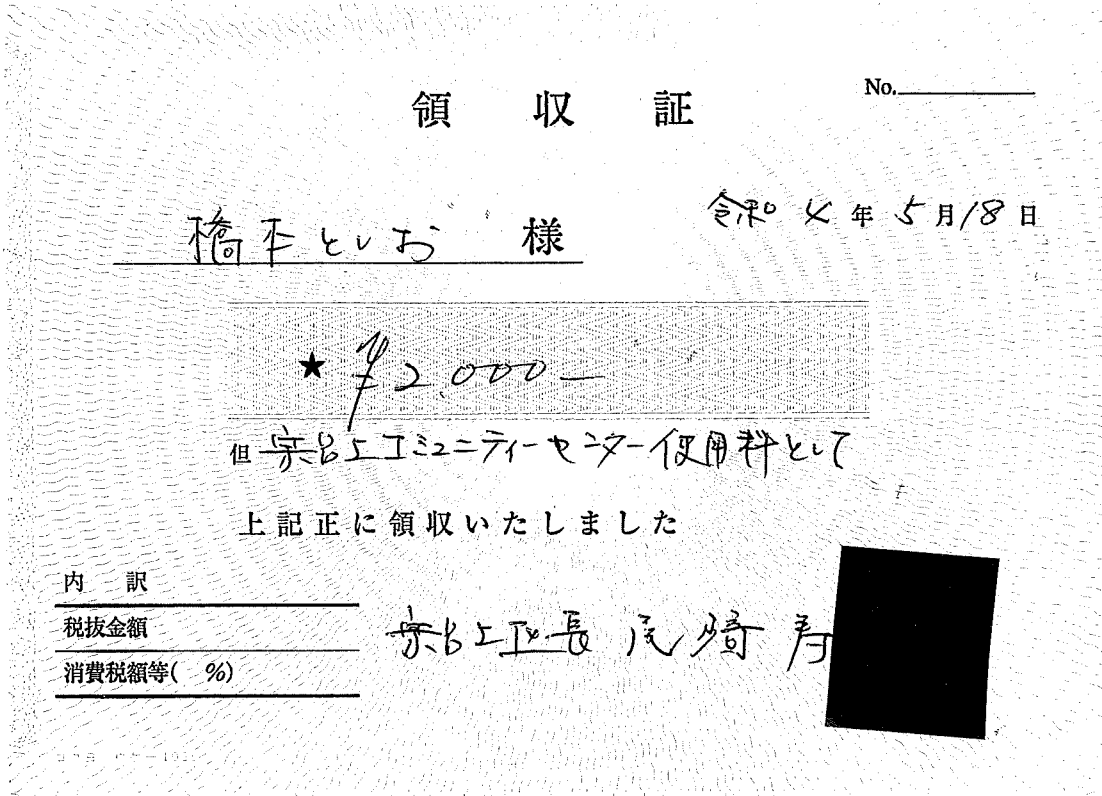 領収証
No.
令和4年5月18日
橋本としお 様
★ ¥2,000―
但 宗呂上コミュニティーセンター使用料として
上記正に領収いたしました
内 訳
税抜金額
消費税額等( %)
宗呂上区長 尾﨑 寿